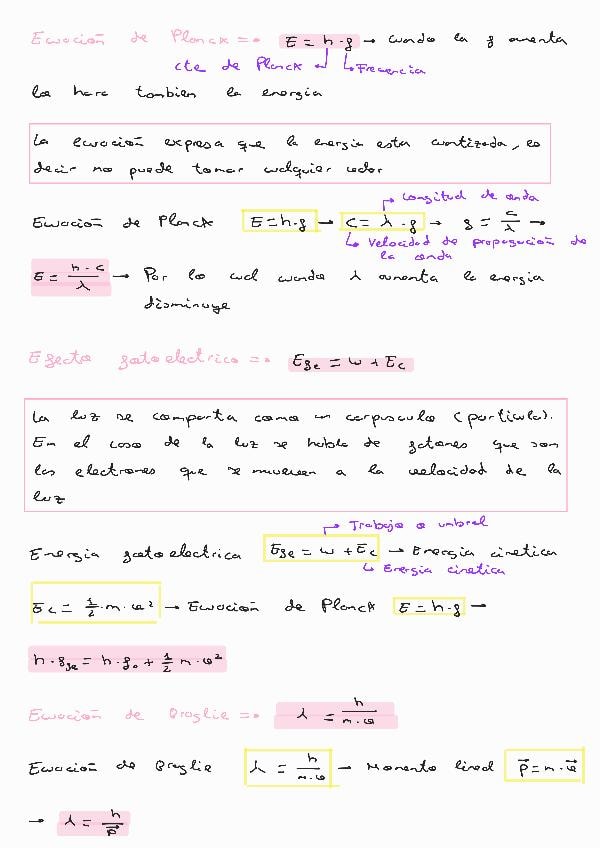 Ecuación de Planck => E = h · f → cuando la f aumenta
cte de Planck ↲ ↳ Frecuencia
lo hara tambien la energia
La ecuación expresa que la energia esta cuantizada, es
decir no puede tomar cualquier valor
↱ Longitud de onda
Ecuación de Planck E = h · f → C = λ · f → f = C/λ →
↳ Velocidad de propagación de
la onda
E = h · c/λ → Por lo cual cuando λ aumenta la energia
disminuye
Efecto fotoelectrico => Efe = w + Ec
La luz se comporta como un corpusculo (particula).
En el caso de la luz se habla de fotones que son
los electrones que se mueven a la velocidad de la
luz
↱ Trabajo o umbral
Energia fotoelectrica Efe = w + Ec → Energia cinetica
↳ Energia cinetica
Ec = 1/2 · m · v² → Ecuación de Planck E = h · f →
h · ffe = h · fo + 1/2 m · v²
Ecuación de Broglie => λ = h/m · v
Ecuación de Broglie λ = h/m · v → Momento lineal p⃗ = m · v⃗
→ λ = h/p⃗